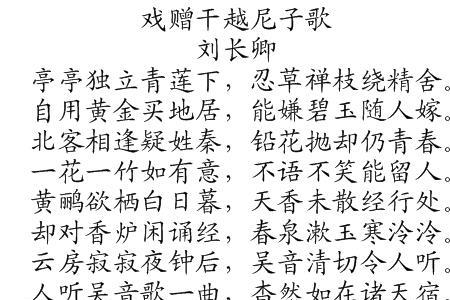 戏赠干越尼子歌
刘长卿
亭亭独立青莲下，忍草禅枝绕精舍。
自用黄金买地居，能嫌碧玉随人嫁。
北客相逢疑姓秦，铅花抛却仍青春。
一花一竹如有意，不语不笑能留人。
黄鹂欲栖白日暮，天香未散经行处。
却对香炉闲诵经，春泉漱玉寒泠泠。
云房寂寂夜钟后，吴音清切令人听。
人听吴音歌一曲，杳然如在诸天宿。